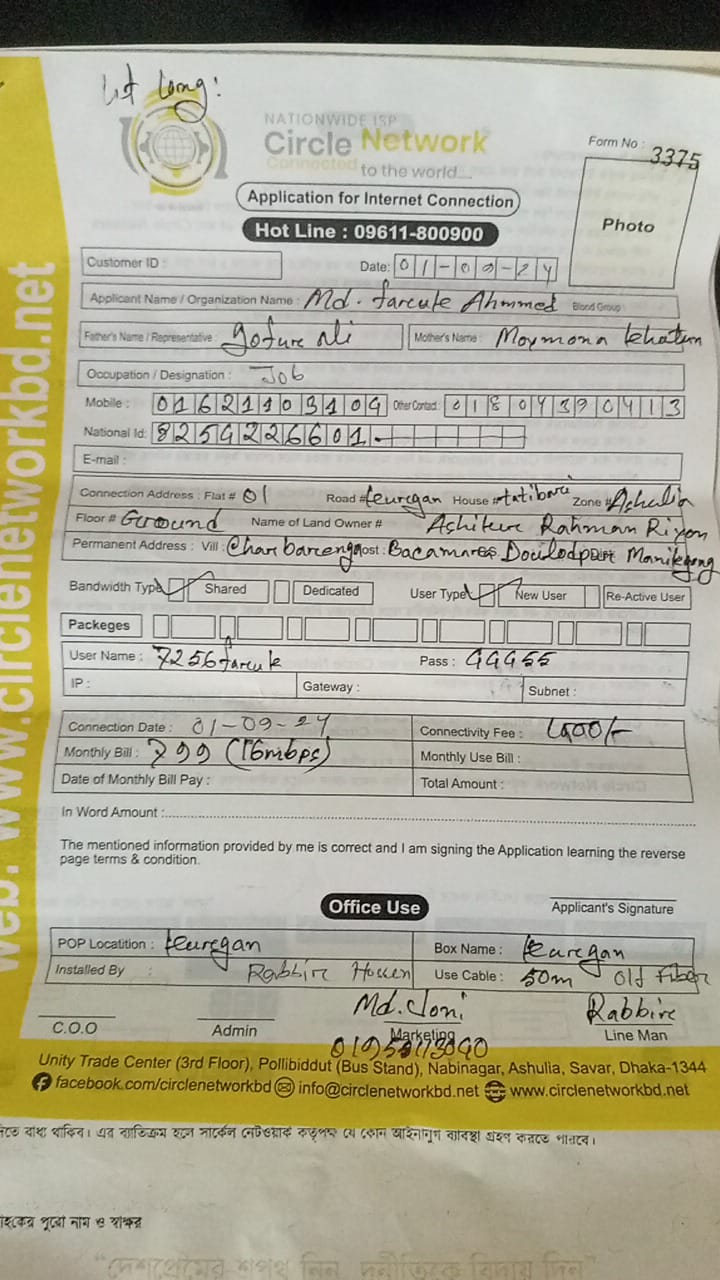 NATIONWIDE ISP
Circle Network
Connected to the world...
Form No : 3375
Application for Internet Connection
Photo
Hot Line : 09611-800900
Customer ID :
Date: 01-09-24
Applicant Name / Organization Name : Md. farcuk Ahmmed Blood Group :
Father's Name / Representative : gofure ali Mother's Name : Moymona khatun
Occupation / Designation : Job
Mobile : 01621103109 Other Contact : 01804390413
National Id: 8259226601
E-mail :
Connection Address : Flat # 01 Road # House # tatibari Zone # Ashulia
Floor # Ground Name of Land Owner # Ashikur Rahman Riyon
Permanent Address : Vill : Post : Dist :
Bandwidth Type Shared Dedicated User Type New User Re-Active User
Packeges
User Name : 7256farcuk Pass : 99955
IP : Gateway : Subnet :
Connection Date : 01-09-24 Connectivity Fee : 1,000/-
Monthly Bill : 799 (16mbps) Monthly Use Bill :
Date of Monthly Bill Pay : Total Amount :
In Word Amount :
The mentioned information provided by me is correct and I am signing the Application learning the reverse
page terms & condition.
Office Use
Applicant's Signature
POP Locatition : Box Name :
Installed By : Rabbire Hossen Use Cable : 50m Old Fiber
Md. Joni Rabbire
C.O.O Admin Marketing Line Man
Unity Trade Center (3rd Floor), Pollibiddut (Bus Stand), Nabinagar, Ashulia, Savar, Dhaka-1344
facebook.com/circlenetworkbd info@circlenetworkbd.net www.circlenetworkbd.net
web: www.circlenetworkbd.net
দিতে বাধ্য থাকিব। এর ব্যতিক্রম হলে সার্কেল নেটওয়ার্ক কতৃপক্ষ যে কোন আইনানুগ ব্যবস্থা গ্রহণ করতে পারবে।
পুরো নাম ও স্বাক্ষর
"দেশপ্রেমের শপথ নিন, দুর্নীতিকে বিদায় দিন"